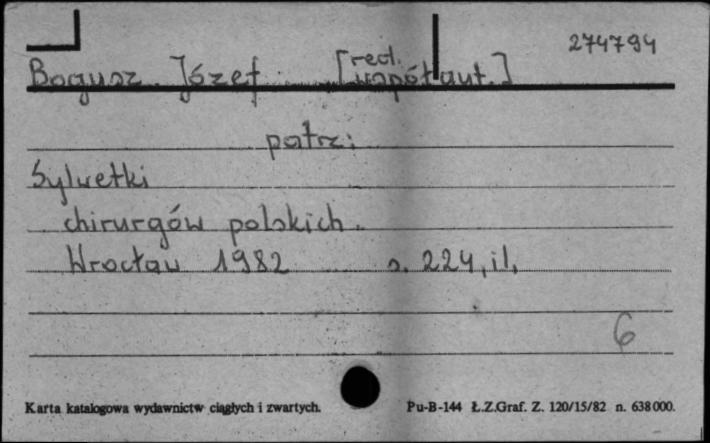 274794
Bogusz Józef [red. współaut.]
patrz:
Sylwetki
chirurgów polskich.
Wrocław 1982 s. 224, il.
6
Karta katalogowa wydawnictw ciągłych i zwartych. Pu-B-144 Ł.Z.Graf. Z. 120/15/82 n. 638000.